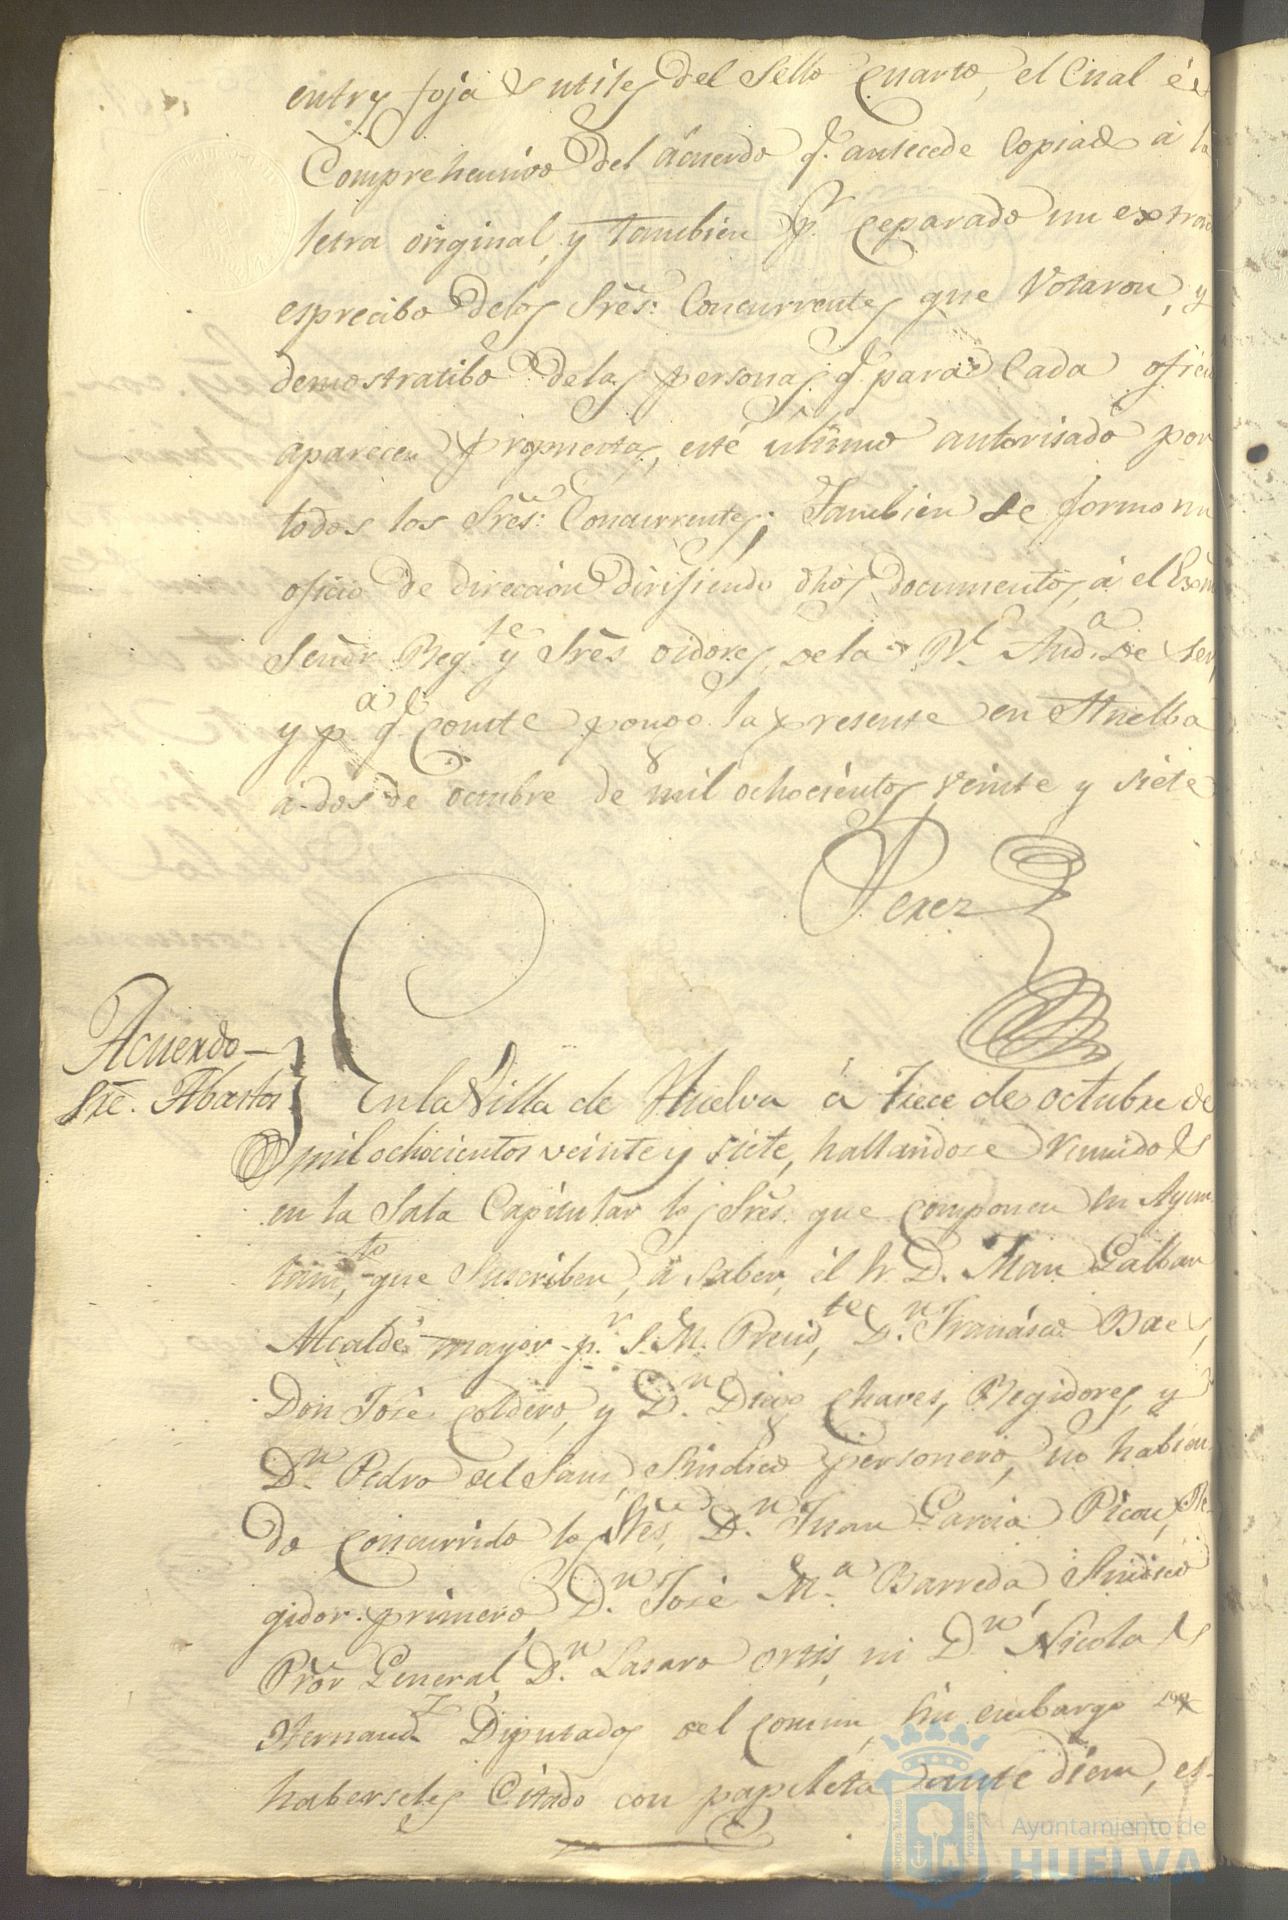 entrs fojas utiles del Sello Cuarto, el Cual és
Comprehensivo del acuerdo q.e antecede Copiado á la
letra original, y tambien p.r ceparado un extrac
esprecibo delos Sres. Concurrentes que Votaron, y
demostratibo delas personas q.e para Cada oficio
aparecen propuestas, esté ultimo autorisado por
todos los Sres. Concurrentes; Tambien se formo un
oficio de direccion dirijiendo dhos documentos, á el Exmo
Señor Reg.te y Sres oidores de la R.l Aud.a de Sev
y p.a q.e conste pongo la presente en Huelba
á dos de octubre de mil ochocientos veinte y siete
Perez
Acuerdo
Sre. Abastos
En la Villa de Huelva á Trece de octubre de
mil ochocientos veinte y siete, hallandose reunidos
en la Sala Capitular los Sres. que componen su Ayun
tam.to que Suscriben, á saber, el Sr. D. Man Galban
Alcalde mayor p.r S. M. Presid.te, D.n Francisco Baes,
Don José Coldero, y D.n Diego Chaves, Regidores, y
D.n Pedro del Sans, Sindico personero, no habien
do concurrido los Sres. D.n Juan Garcia Picon, Re-
gidor primero, D.n José M.a Barreda Sindico
Pror General, D.n Lasaro Ortis, ni D.n Nicolas
Hernand.z Diputados del comun, sin embargo de
haberseles Citado con papeleta ante diem, es-
Ayuntamiento de
HUELVA
PORTUS MARIS
CUSTODIA